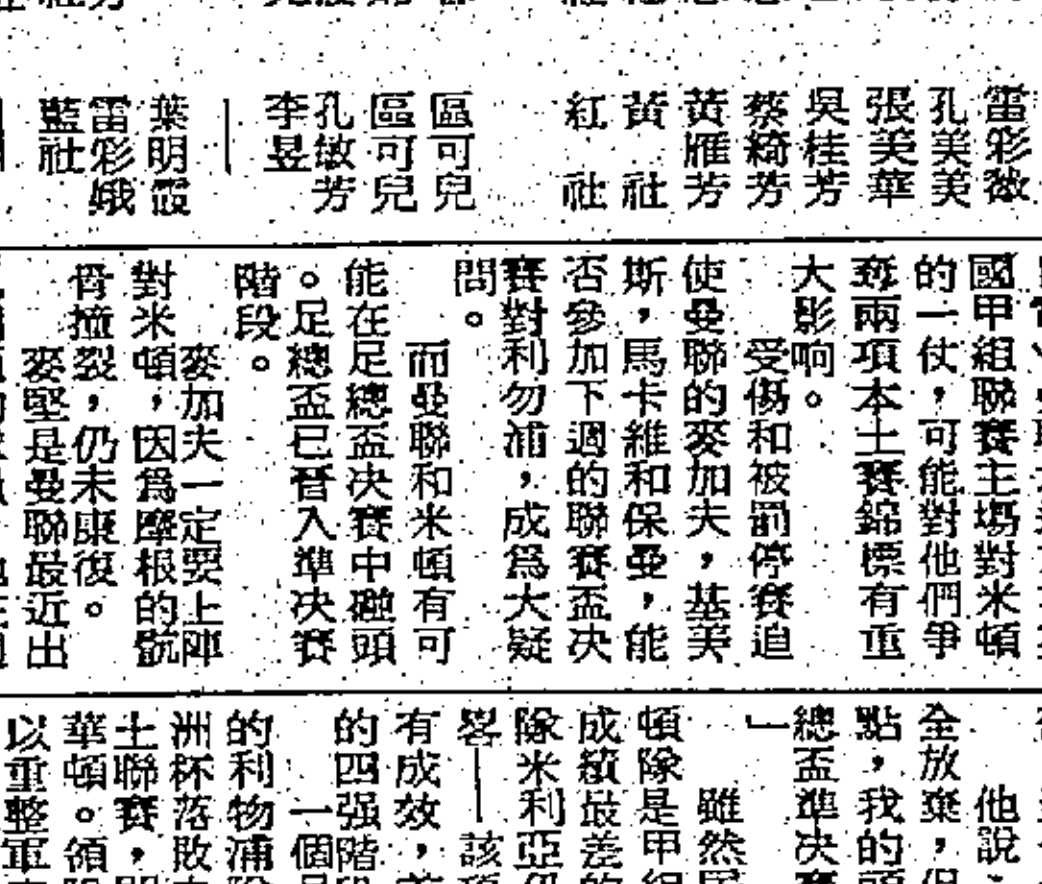 雷彩薇
孔美美
張美華
吳桂芳
蔡綺芳
黃雁芳
黃社
紅社
區可兒
區可兒
孔敏芳
李昱
葉明霞
雷彩娥
藍社
國甲組聯賽主場對米頓
的一仗，可能對他們爭
奪兩項本土賽錦標有重
大影响。
受傷和被罰停賽迫
使曼聯的麥加夫，基美
斯，馬卡維和保曼，能
否參加下週的聯賽盃决
賽對利勿浦，成爲大疑
問。
而曼聯和米頓有可
能在足總盃决賽中碰頭
。足總盃已晉入準决賽
階段。
麥加夫一定要上陣
對米頓，因爲摩根的骯
骨撞裂，仍未康復。
麥堅是曼聯最近出
他說
全放棄，但
點，我的
總盃準决賽
」
雖然
頓隊是甲組
成績最差的
隊米利亞
畧—該
有成效，
的四强階段
一個
的利物浦
洲杯落敗
土聯賽，
華頓。領
以重整軍